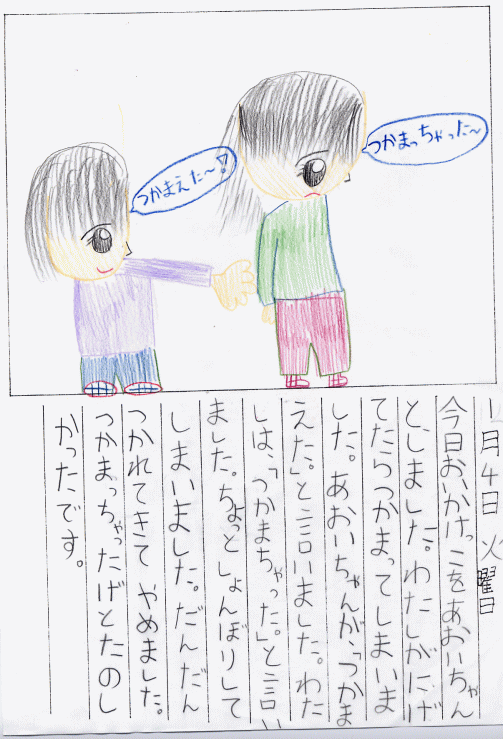 つかまっちゃった〜
つかまえた〜!
11月4日 火曜日
今日おいかけっこをあおいちゃん
と、しました。わたしがにげ
てたらつかまってしまいま
した。あおいちゃんが、「つかま
えた。」と言いました。わた
しは、「つかまちゃった。」と言い
ました。ちょっとしょんぼりして
しまいました。だんだん
つかれてきて やめました。
つかまっちゃったげとたのし
かったです。